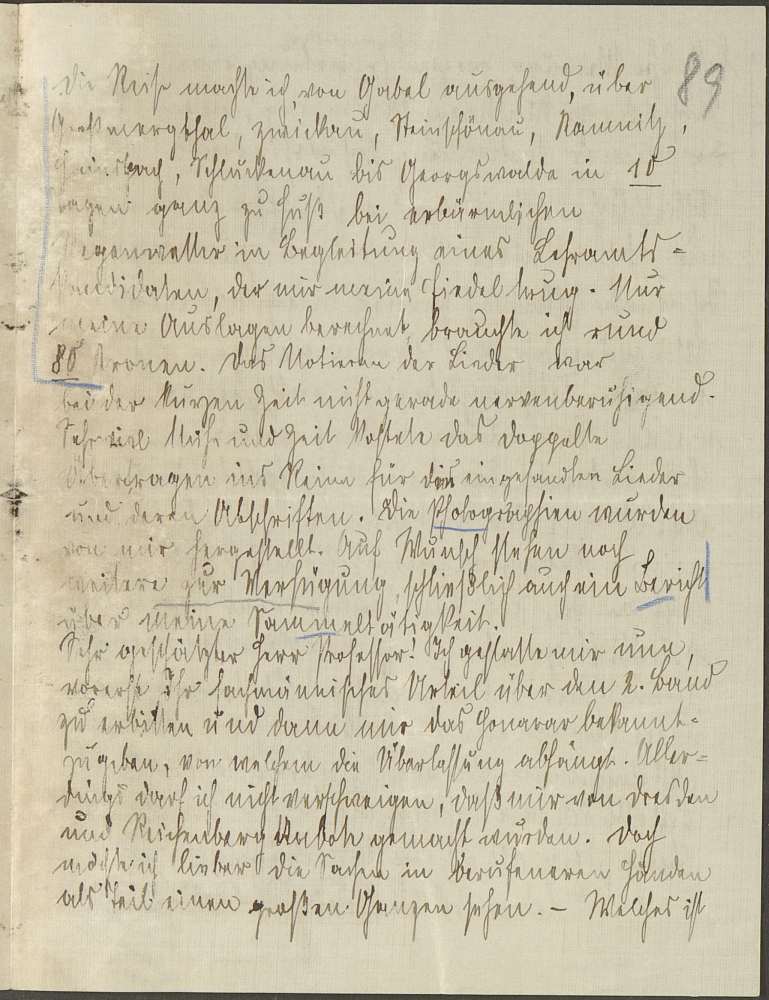 89
Die Reise machte ich, von Gabel ausgehend, über
Großmergthal, Zwickau, Steinschönau, Kamnitz,
Hainsbach, Schluckenau bis Georgswalde in 10
Tagen ganz zu Fuß bei erbärmlichen
Regenwetter in Begleitung eines Lehramts-
kandidaten, der mir meine Fiedel trug. Nur
meine Auslagen berechnet, brauchte ich rund
80 Kronen. Das Notieren der Lieder war
bei der kurzen Zeit nicht gerade nervenberuhigend.
Sehr viel Mühe und Zeit kostete das doppelte
Übertragen ins Reine für die eingesandten Lieder
und deren Abschriften. Die Photographien wurden
von mir hergestellt. Auf Wunsch stehen noch
weitere zur Verfügung, schließlich auch ein Bericht
über meine Sammeltätigkeit.
Sehr geschätzter Herr Professor! Ich gestatte mir nun,
vorerst Ihr fachmännisches Urteil über den 2. Band
zu erbitten und dann mir das Honorar bekannt-
zugeben, von welchem die Überlassung abhängt. Aller-
dings darf ich nicht verschweigen, daß mir von Dresden
und Reichenberg Anbote gemacht wurden. Doch
möchte ich lieber die Sachen in berufeneren Händen
als Teil einen großen Ganzen sehen. – Welches ist